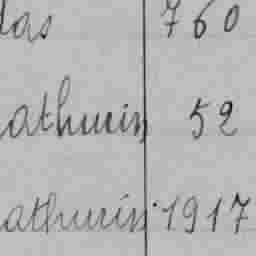 las 760
athurin 52
athurin 1917